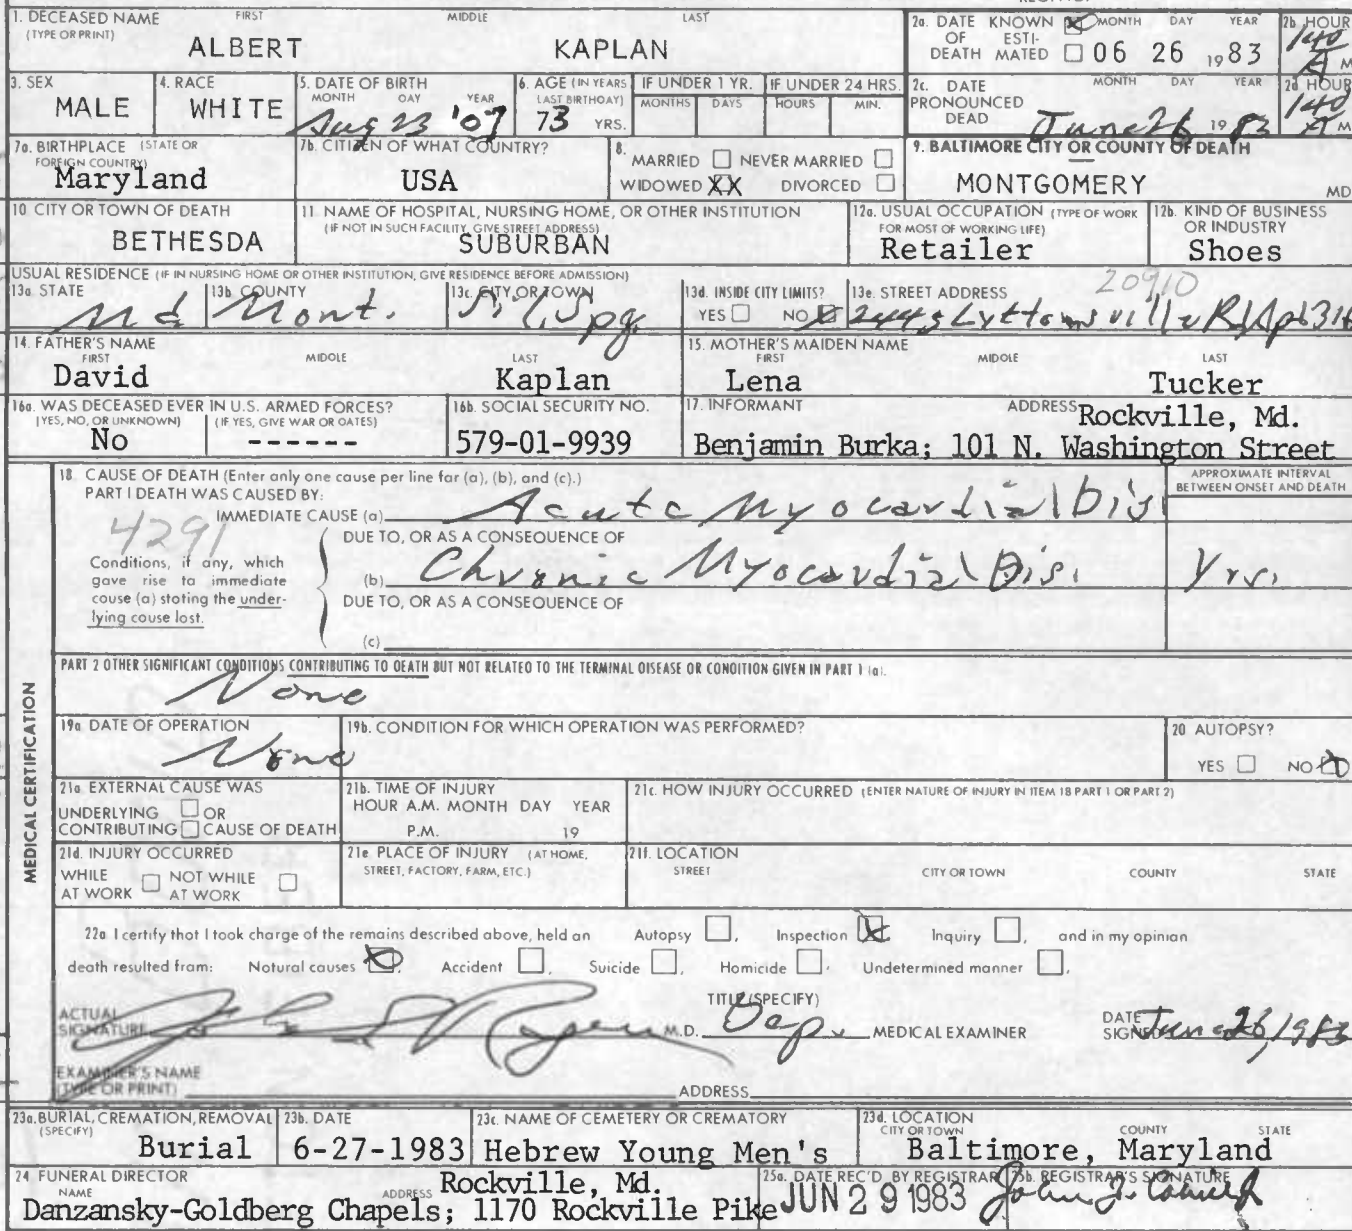 1. DECEASED NAME FIRST MIDDLE LAST
(TYPE OR PRINT)
ALBERT KAPLAN
2a. DATE KNOWN MONTH DAY YEAR
OF ESTI-
DEATH MATED 06 26 1983
2b. HOUR
140
A M
3. SEX
MALE
4. RACE
WHITE
5. DATE OF BIRTH
MONTH DAY YEAR
Aug 23 '07
6. AGE (IN YEARS
LAST BIRTHDAY)
73 YRS.
IF UNDER 1 YR.
MONTHS DAYS
IF UNDER 24 HRS.
HOURS MIN.
2c. DATE MONTH DAY YEAR
PRONOUNCED
DEAD June 26 1983
2d. HOUR
140
A M
7a. BIRTHPLACE (STATE OR
FOREIGN COUNTRY)
Maryland
7b. CITIZEN OF WHAT COUNTRY?
USA
8.
MARRIED NEVER MARRIED
WIDOWED XX DIVORCED
9. BALTIMORE CITY OR COUNTY OF DEATH
MONTGOMERY MD
10 CITY OR TOWN OF DEATH
BETHESDA
11. NAME OF HOSPITAL, NURSING HOME, OR OTHER INSTITUTION
(IF NOT IN SUCH FACILITY, GIVE STREET ADDRESS)
SUBURBAN
12a. USUAL OCCUPATION (TYPE OF WORK
FOR MOST OF WORKING LIFE)
Retailer
12b. KIND OF BUSINESS
OR INDUSTRY
Shoes
USUAL RESIDENCE (IF IN NURSING HOME OR OTHER INSTITUTION, GIVE RESIDENCE BEFORE ADMISSION)
13a. STATE
Md
13b. COUNTY
Mont.
13c. CITY OR TOWN
Sil. Spg.
13d. INSIDE CITY LIMITS?
YES NO
13e. STREET ADDRESS 20910
2445 Lyttonsville Rd Apt 316
14. FATHER'S NAME
FIRST MIDDLE LAST
David Kaplan
15. MOTHER'S MAIDEN NAME
FIRST MIDDLE LAST
Lena Tucker
16a. WAS DECEASED EVER IN U.S. ARMED FORCES?
(YES, NO, OR UNKNOWN) (IF YES, GIVE WAR OR DATES)
No ------
16b. SOCIAL SECURITY NO.
579-01-9939
17. INFORMANT ADDRESS Rockville, Md.
Benjamin Burka; 101 N. Washington Street
MEDICAL CERTIFICATION
18. CAUSE OF DEATH (Enter only one cause per line for (a), (b), and (c).)
PART I DEATH WAS CAUSED BY:
APPROXIMATE INTERVAL
BETWEEN ONSET AND DEATH
IMMEDIATE CAUSE (a) Acute Myocardial Dis
4291
DUE TO, OR AS A CONSEQUENCE OF
Conditions, if any, which
gave rise to immediate
cause (a) stating the under-
lying cause last.
(b) Chronic Myocardial Dis. Yrs.
DUE TO, OR AS A CONSEQUENCE OF
(c)
PART 2 OTHER SIGNIFICANT CONDITIONS CONTRIBUTING TO DEATH BUT NOT RELATED TO THE TERMINAL DISEASE OR CONDITION GIVEN IN PART 1 (a).
None
19a DATE OF OPERATION
None
19b. CONDITION FOR WHICH OPERATION WAS PERFORMED?
20 AUTOPSY?
YES NO
21a. EXTERNAL CAUSE WAS
UNDERLYING OR
CONTRIBUTING CAUSE OF DEATH
21b. TIME OF INJURY
HOUR A.M. MONTH DAY YEAR
P.M. 19
21c. HOW INJURY OCCURRED (ENTER NATURE OF INJURY IN ITEM 18 PART 1 OR PART 2)
21d. INJURY OCCURRED
WHILE NOT WHILE
AT WORK AT WORK
21e PLACE OF INJURY (AT HOME,
STREET, FACTORY, FARM, ETC.)
21f. LOCATION
STREET CITY OR TOWN COUNTY STATE
22a I certify that I took charge of the remains described above, held an Autopsy , Inspection , Inquiry , and in my opinion
death resulted from: Natural causes , Accident , Suicide , Homicide , Undetermined manner ,
ACTUAL
SIGNATURE M.D.
TITLE (SPECIFY)
Dep. MEDICAL EXAMINER
DATE
SIGNED June 26, 1983
EXAMINER'S NAME
(TYPE OR PRINT) ADDRESS
23a. BURIAL, CREMATION, REMOVAL
(SPECIFY)
Burial
23b. DATE
6-27-1983
23c. NAME OF CEMETERY OR CREMATORY
Hebrew Young Men's
23d. LOCATION
CITY OR TOWN COUNTY STATE
Baltimore, Maryland
24 FUNERAL DIRECTOR
NAME ADDRESS Rockville, Md.
Danzansky-Goldberg Chapels; 1170 Rockville Pike
25a. DATE REC'D BY REGISTRAR
JUN 29 1983
25b. REGISTRAR'S SIGNATURE
John J.